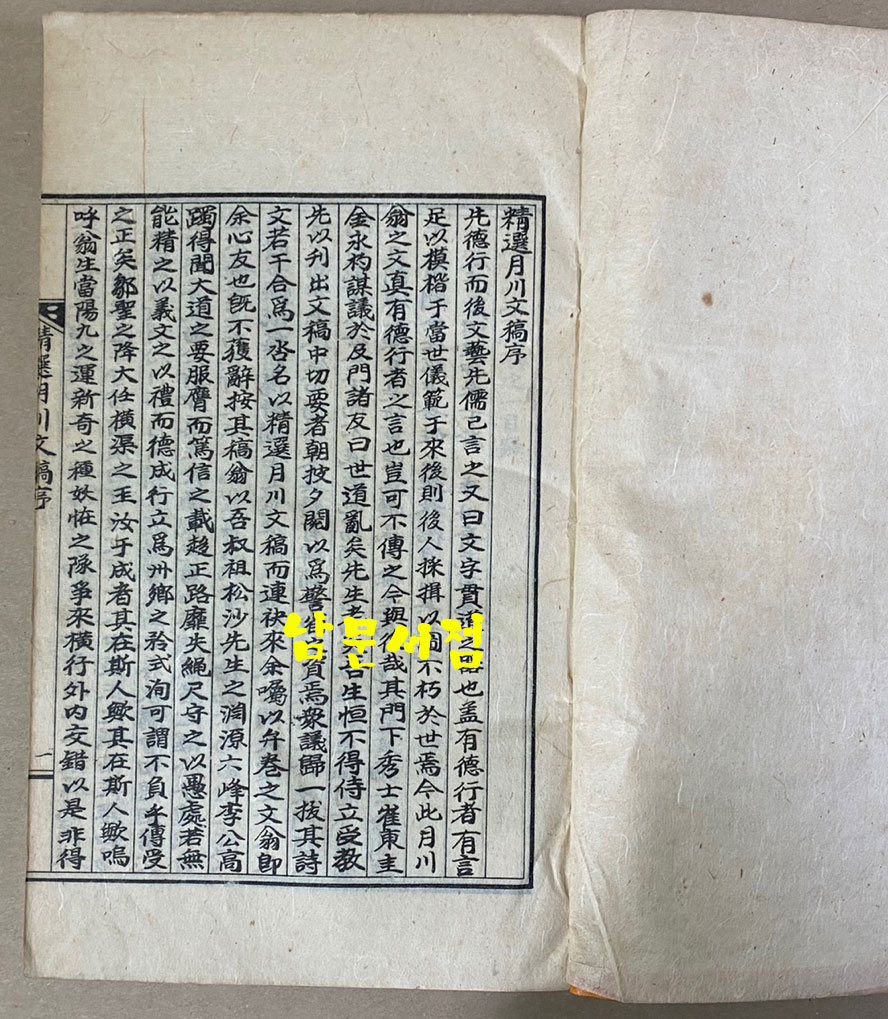 精選月川文稿序
先德行而後文藝先儒已言之又曰文字貫道之器也盖有德行者有言
足以模楷于當世儀範于來後則後人採揖以圖不朽於世焉今此月川
翁之文真有德行者之言也豈可不傳之今與後哉其門下秀士崔東圭
金永杓謀議於及門諸友曰世道亂矣先生老矣吾生恒不得侍立受教
先以刊出文稿中切要者朝披夕閱以爲警省之資焉衆議歸一拔其詩
文若干合爲一沓名以精選月川文稿而連袂來余囑以弁卷之文翁卽
余心友也旣不獲辭按其稿翁以吾叔祖松沙先生之淵源六峰李公高
躅得聞大道之要服膺而篤信之載趍正路靡失繩尺守之以愚處若無
能精之以義文之以禮而德成行立爲州鄉之矜式洵可謂不負乎傳受
之正矣鄒聖之降大任橫渠之玉汝于成者其在斯人歟其在斯人歟嗚
呼翁生當陽九之運新奇之種妖怪之隊爭來橫行外內交錯以是非得
精選月川文稿序
一
남문서점